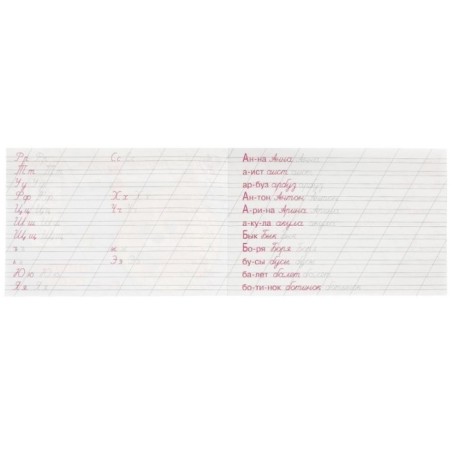 Рр Сс
Тт
Уу
Фф Хх
Цц Чч
Шш
Щщ
ъ ы
ь Ээ
Юю
Яя
Ан-на Анна
а-ист аист
ар-буз арбуз
Ан-тон Антон
А-ри-на Арина
а-ку-ла акула
Бык Бык
Бо-ря Боря
бу-сы бусы
ба-лет балет
бо-ти-нок ботинок